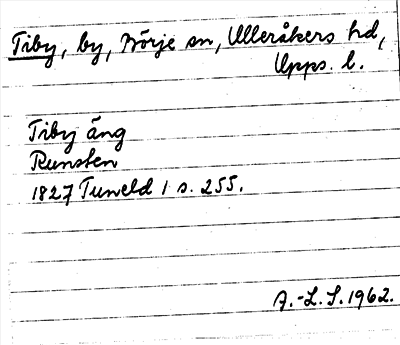 Tiby, by, Börje sn, Ulleråkers hd,
Upps. l.
Tiby äng
Runsten
1827 Tuneld 1 s. 255.
A.-L. S. 1962.